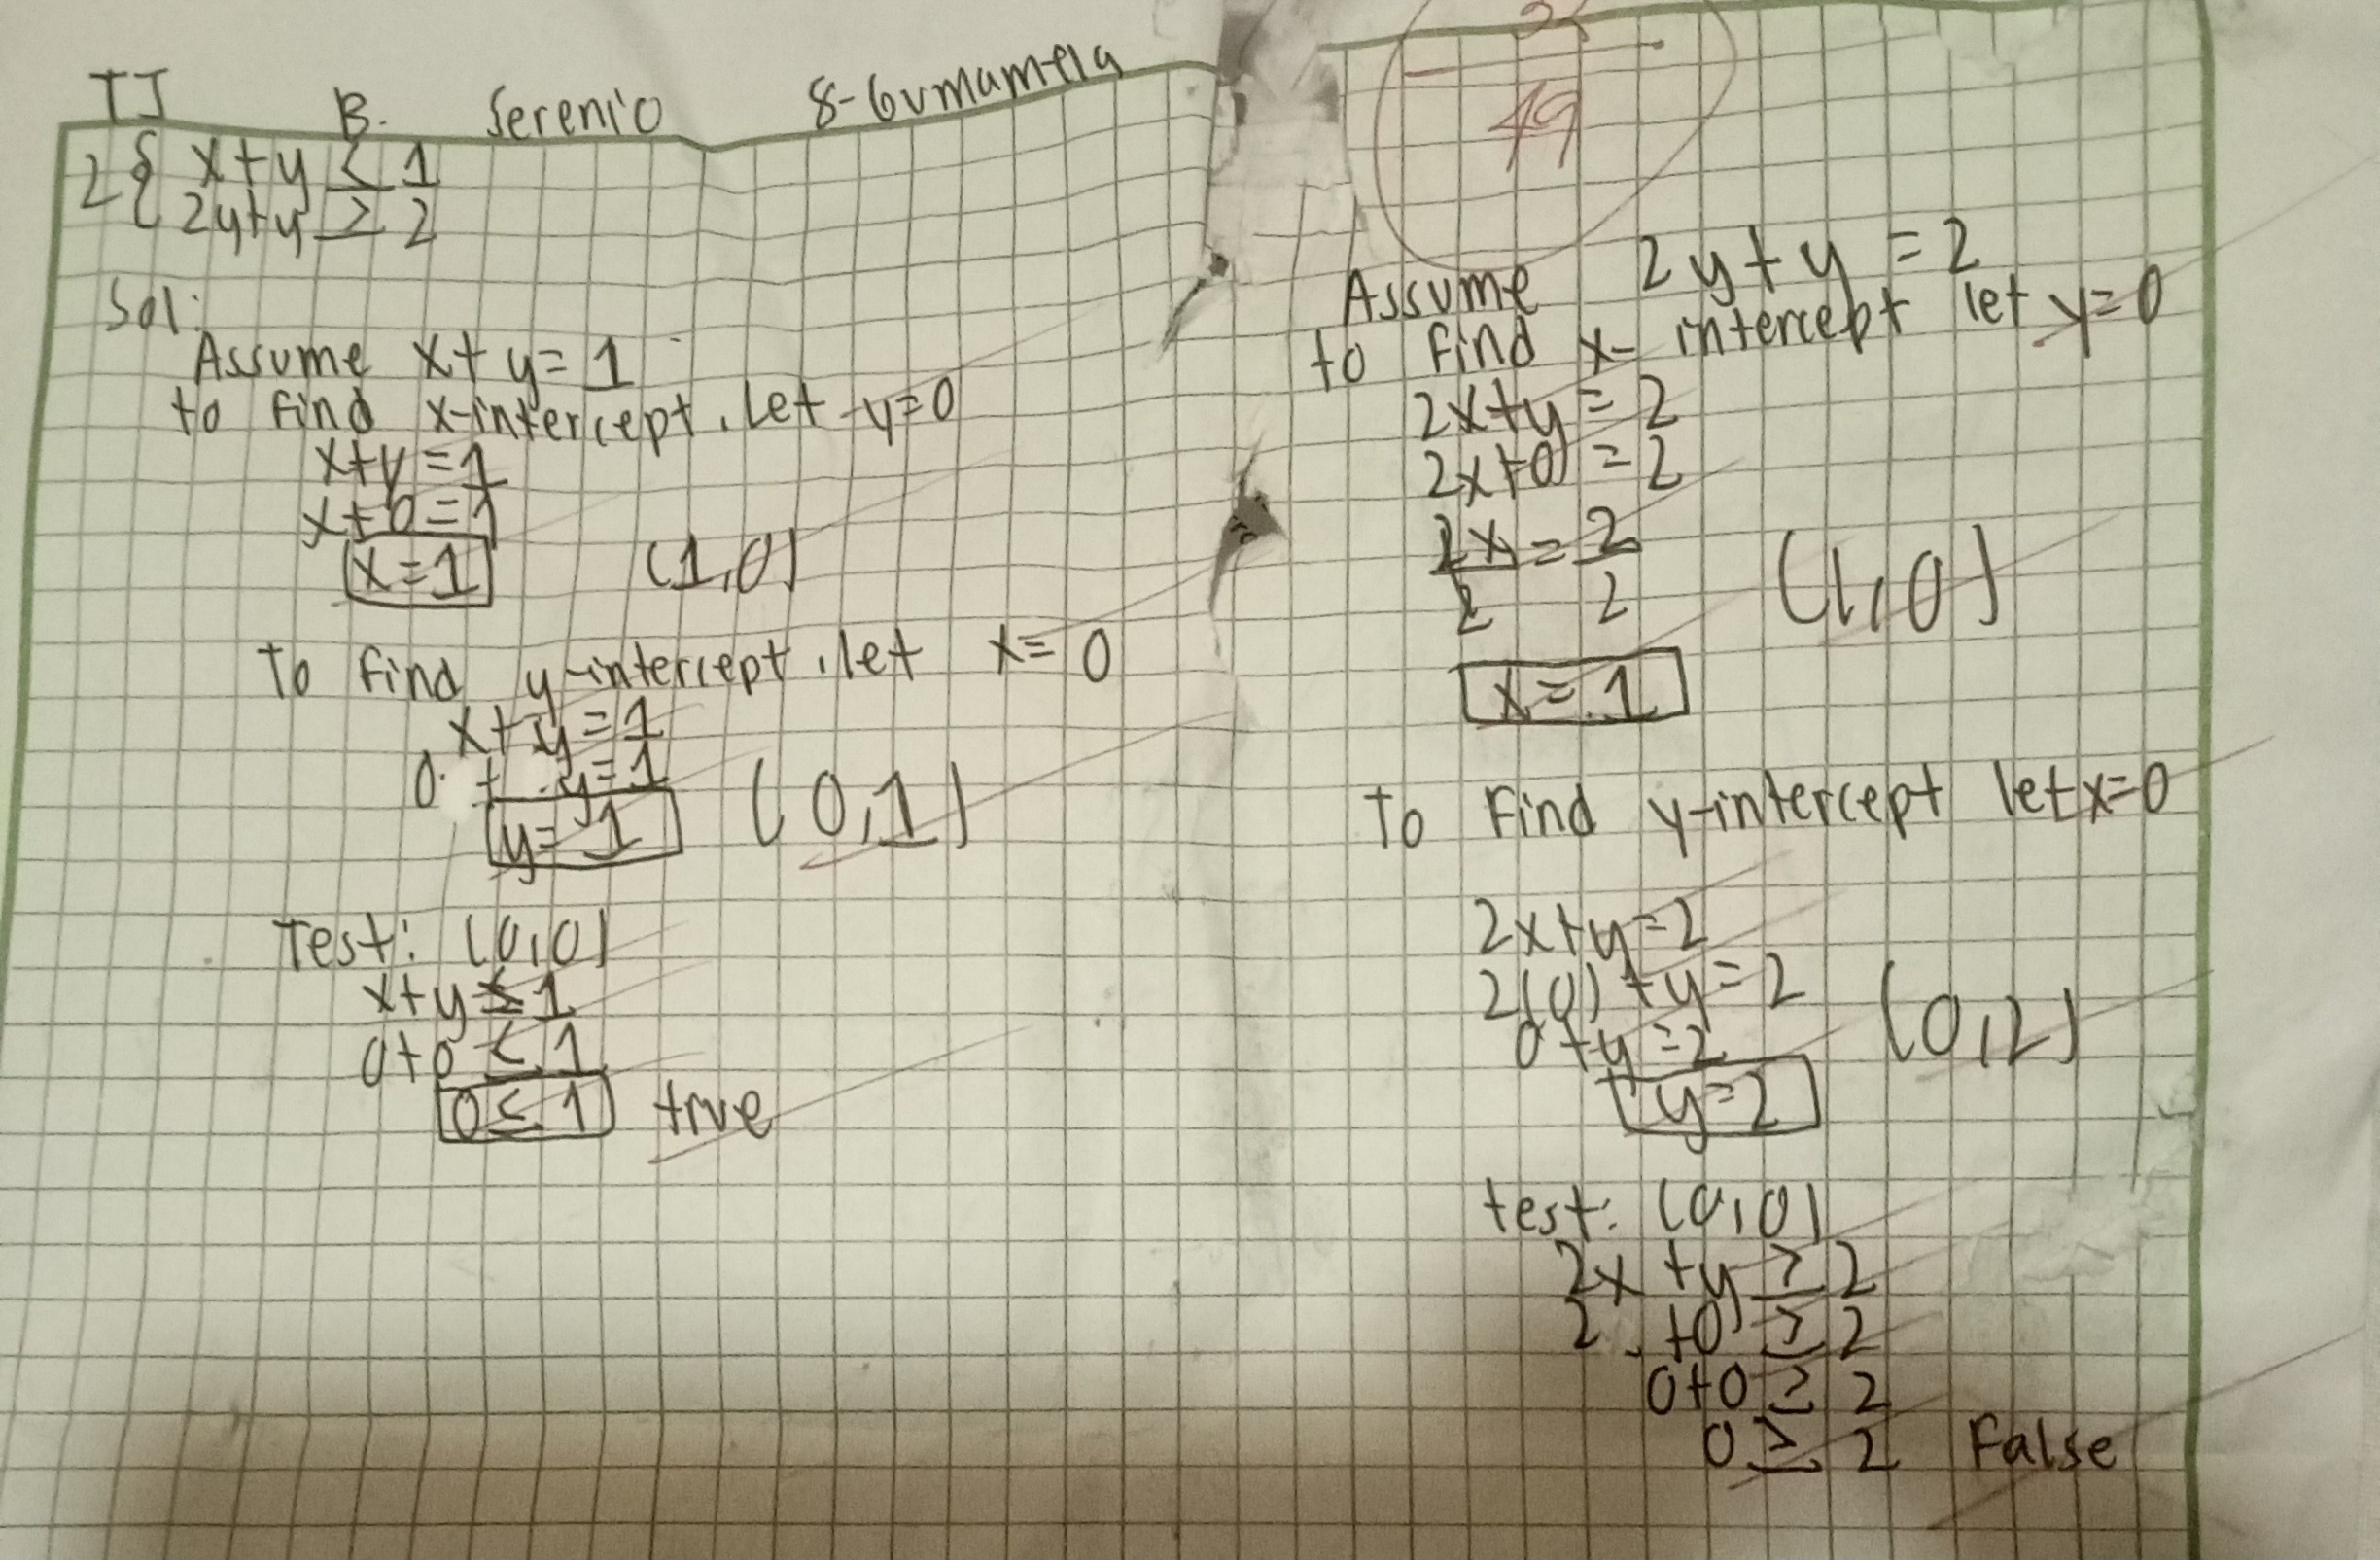 TJ B. Serenio 8-Gumamela
2{ x+y ≤ 1
2y+y ≥ 2
Sol:
Assume x+y=1
to find x-intercept. Let y=0
x+y=1
x+0=1
x=1 (1,0)
To find y-intercept, let x=0
x+y=1
0+y=1
y=1 (0,1)
Test: (0,0)
x+y≤1
0+0≤1
0≤1 true
49
Assume 2y+y=2
to find x-intercept let y=0
2x+y=2
2x+0=2
2x/2=2/2 (1,0)
x=1
To Find y-intercept let x=0
2x+y=2
2(0)+y=2
0+y=2 (0,2)
y=2
test: (0,0)
2x+y≥2
2 +0≥2
0+0≥2
0≥2 False